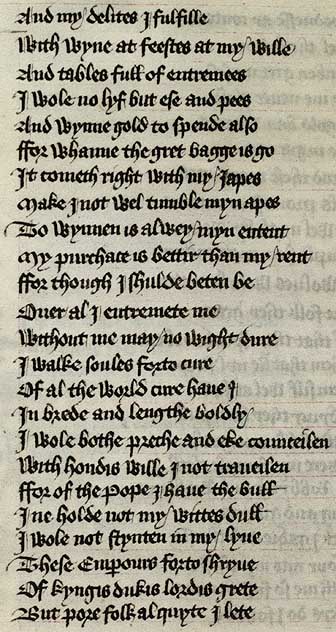 And my delites I fulfille
With wyne at feestes at my wille
And tables full of entremees
I wole no lyf but ese and pees
And wynne gold to spende also
ffor whanne the gret bagge is go
It cometh right with my Iapes
Make I not wel tumble myn apes
To wynnen is alwey myn entent
My purchace is bettir than my rent
ffor though I shulde beten be
Ouer al I entremete me
Without me may no wight dure
I walke soules forto cure
Of al the world cure haue I
In brede and lengthe boldly
I wole bothe preche and eke counceilen
With hondis wille I not traueilen
ffor of the Pope I haue the bull
I ne holde not my wittes dull
I wole not stynten in my lyue
These Empours forto shryue
Of kyngis dukis lordis grete
But pore folk al quyte I lete